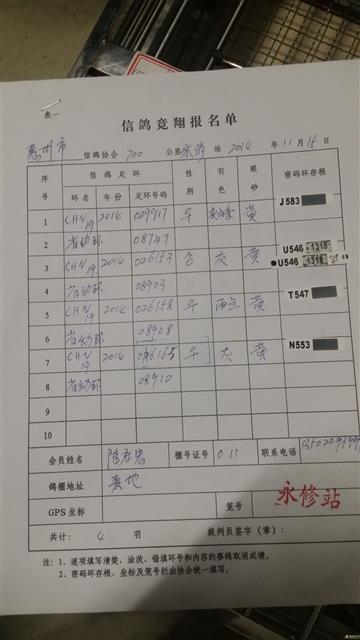 表一
信鸽竞翔报名单
惠州市 信鸽协会 700 公里 永修 站 2014 年 11 月 15 日
序号 信鸽足环 性别 羽色 眼砂 密码环存根
环名 年份 足环号码
1 CHN 19 2014 029917 黄 J583
2 省动环 08747
3 CHN 19 2014 026153 灰 黄 U546 1318
U546 1318
4 省动环 08903
5 CHN 19 2014 026158 雨点 黄 T547
6 省动环 08908
7 CHN 19 2014 026165 灰 黄 N553
8 省动环 08910
9
10
会员姓名 棚号证号 011 联系电话
鸽棚地址
GPS坐标 笼号 永修站
共计: 4 羽 裁判员签字(章):
注: 1、逐项填写清楚,涂改、错填环号和内容的赛鸽取消成绩。
2、密码环存根、坐标及笼号栏由协会统一填写。